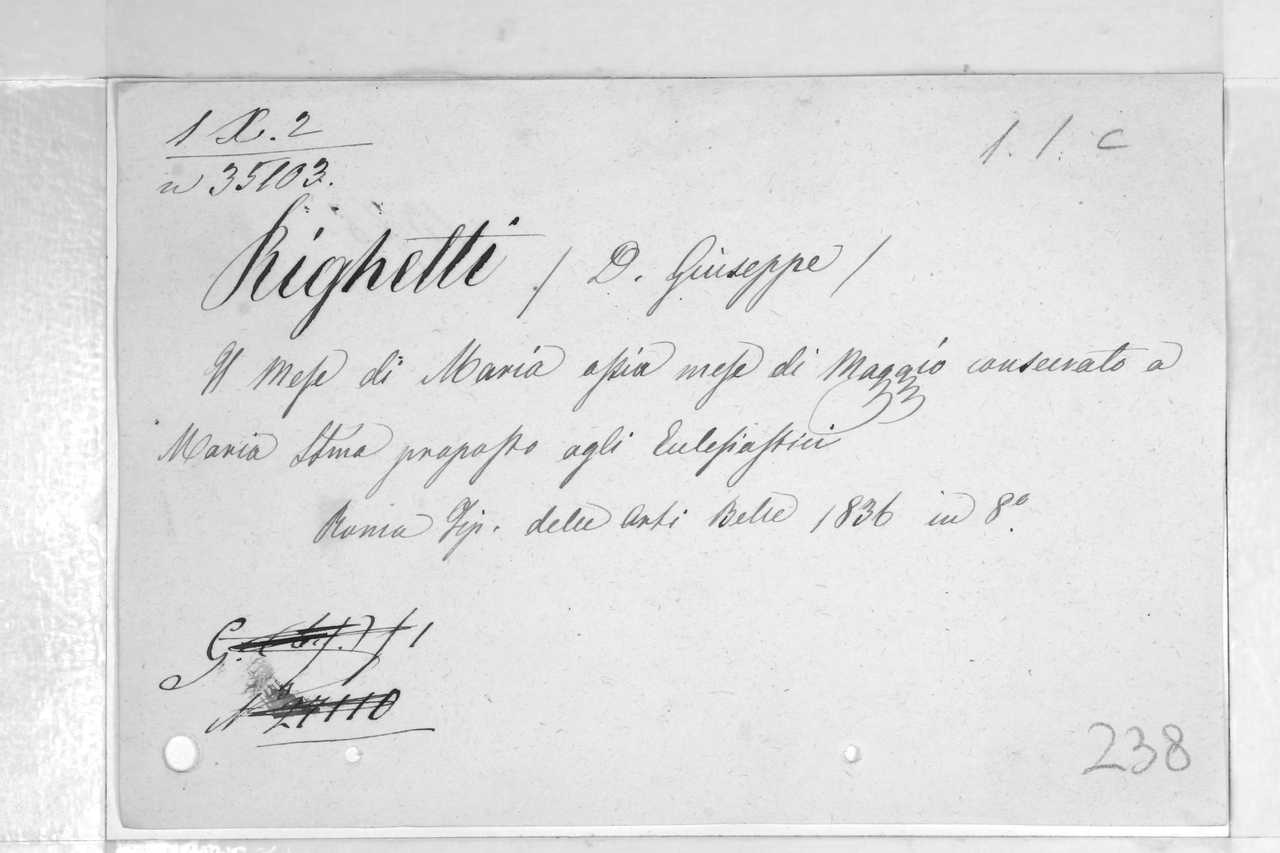 1 X. 2
n 35103.
1. 1. C
Righetti / D. Giuseppe /
Il Mese di Maria ossia mese di Maggio consecrato a
Maria SSma proposto agli Ecclesiastici
Roma Tip. delle Arti Belle 1836 in 8°.
G.
N° 27110
238